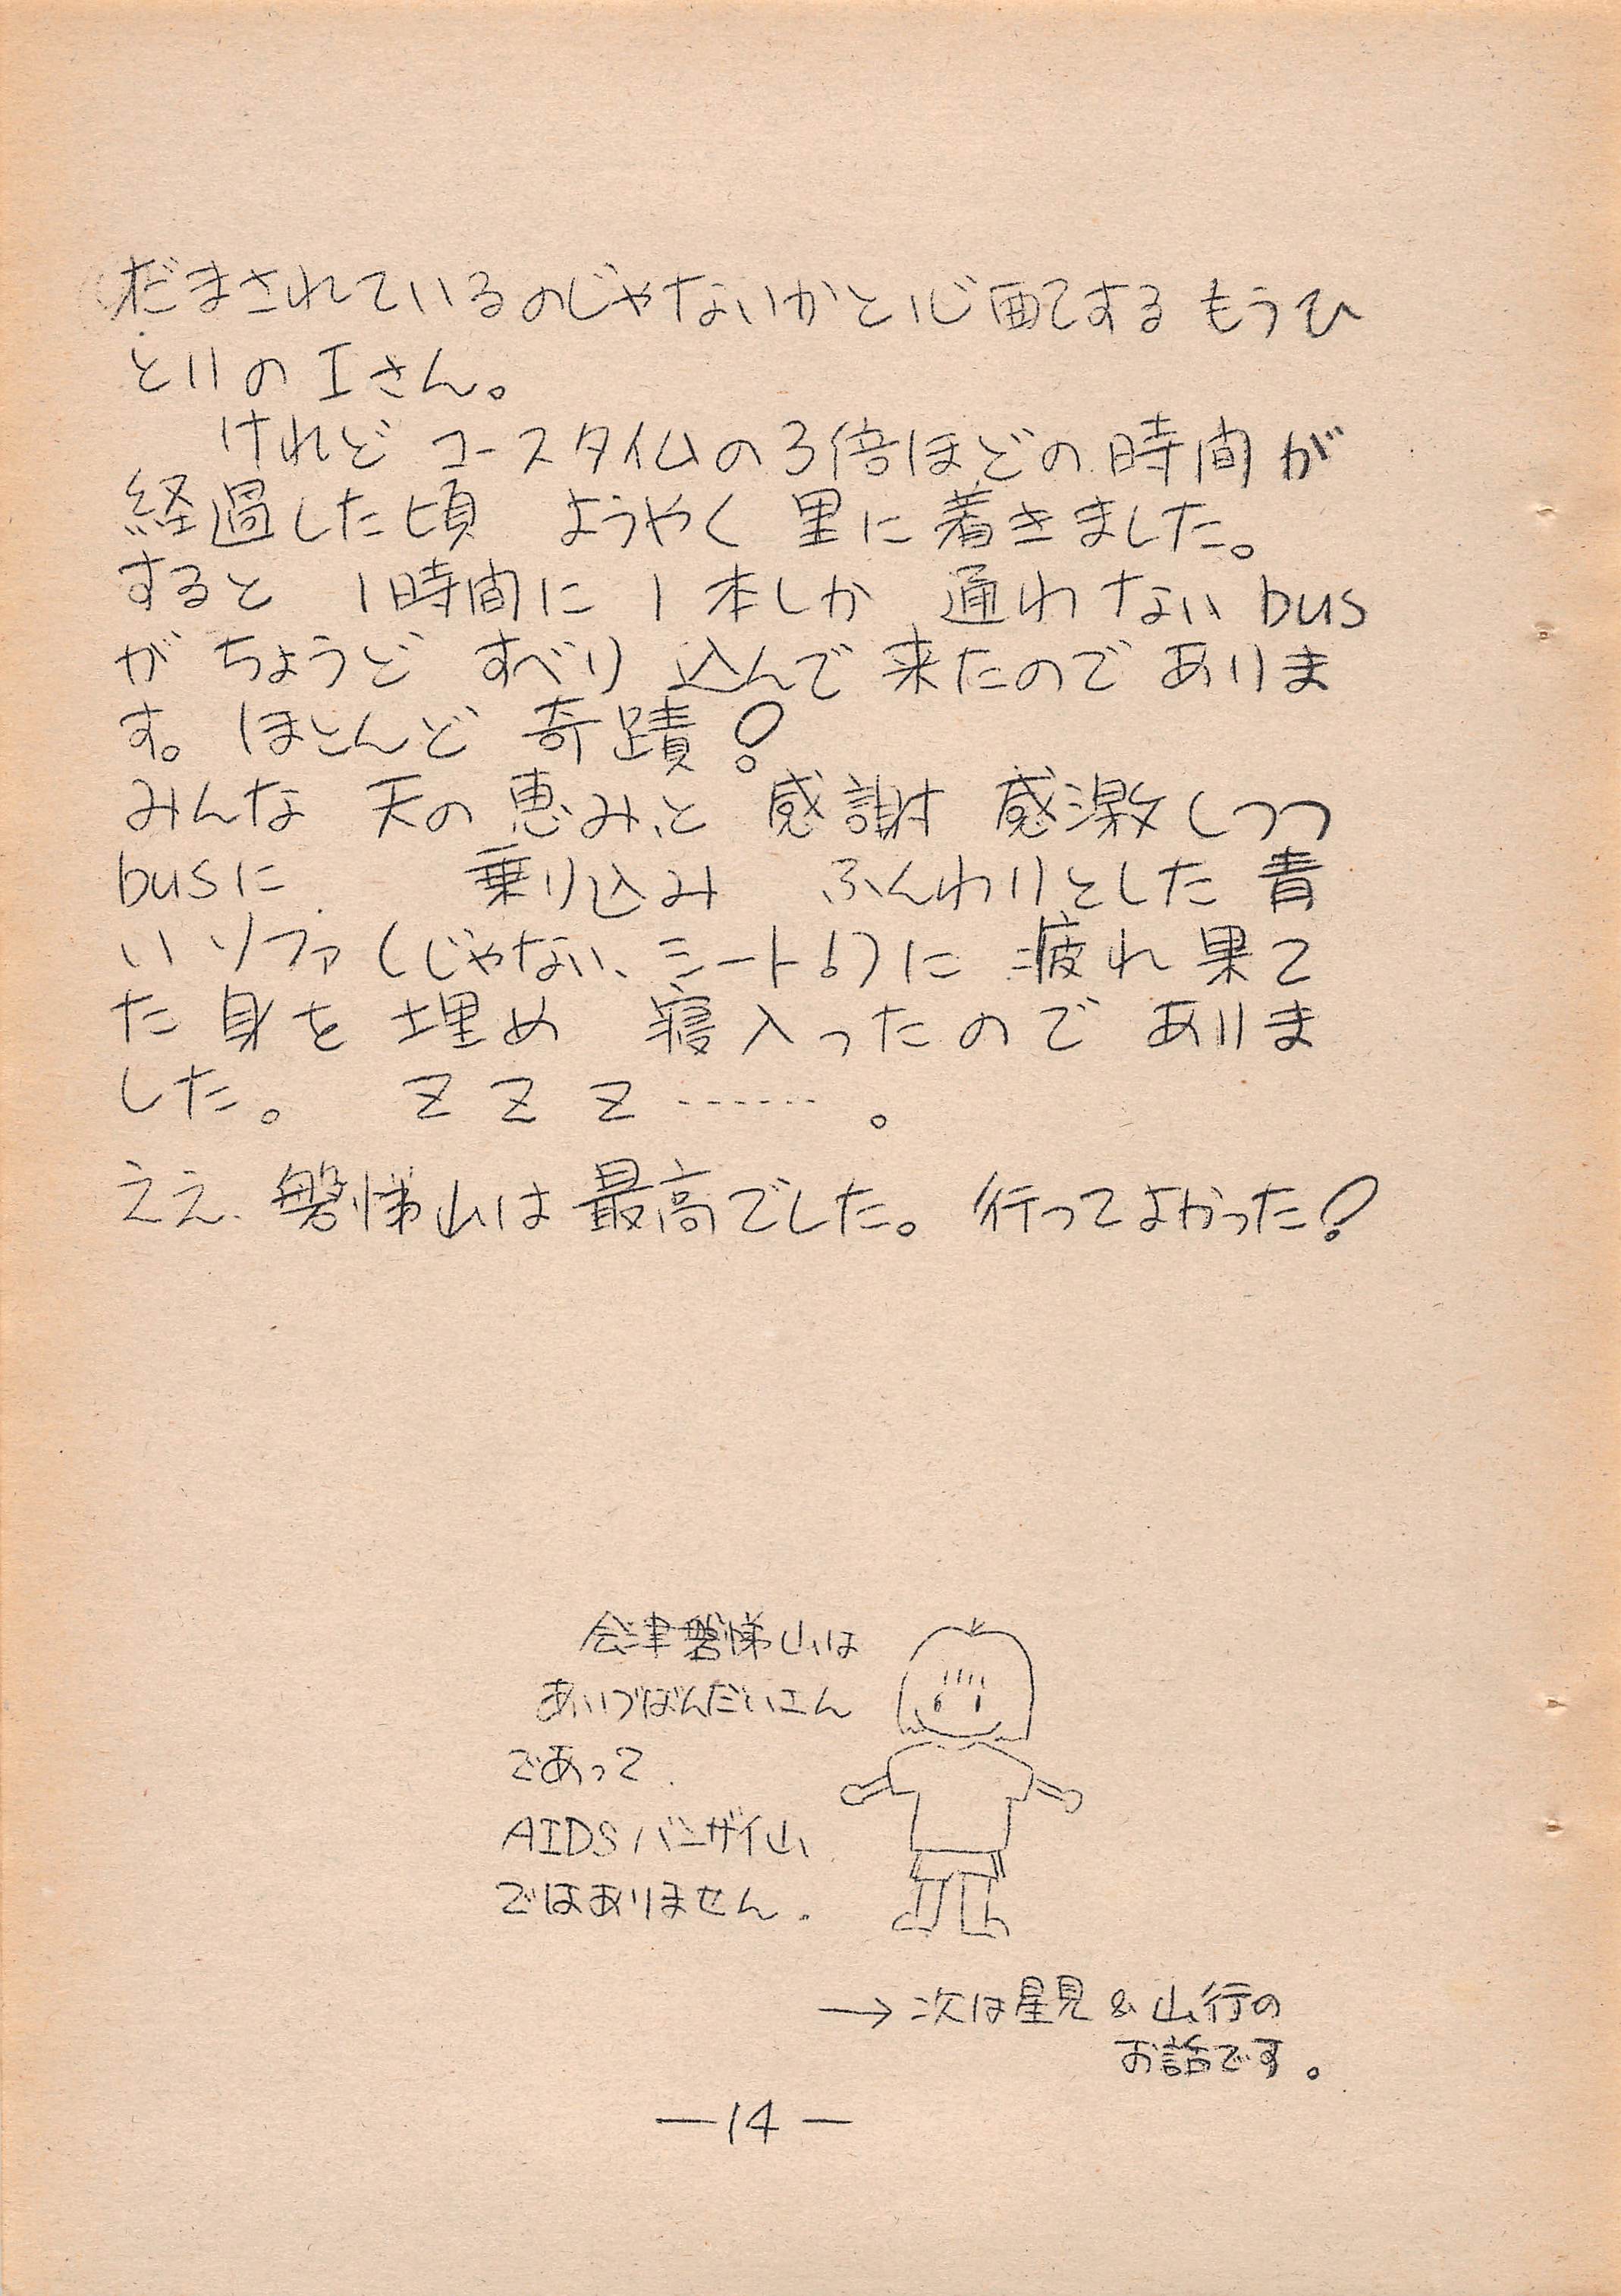 だまされているのじゃないかと心配するもうひ
とりのIさん。
けれど コースタイムの3倍ほどの時間が
経過した頃 ようやく 里に着きました。
すると 1時間に 1本しか 通わない bus
が ちょうど すべり 込んで 来たので ありま
す。ほとんど 奇蹟!
みんな 天の恵みと 感謝 感激しつつ
busに 乗り込み ふんわりとした 青
い ソファ(じゃない、シート!)に 疲れ果て
た 身を 埋め 寝入ったので ありま
した。 Z Z Z ……。
ええ、磐悌山は最高でした。行ってよかった!
会津磐悌山は
あいづばんだいさん
であって
AIDSバンザイ山
ではありません。
→ 次は星見 & 山行の
お話です。
—14—